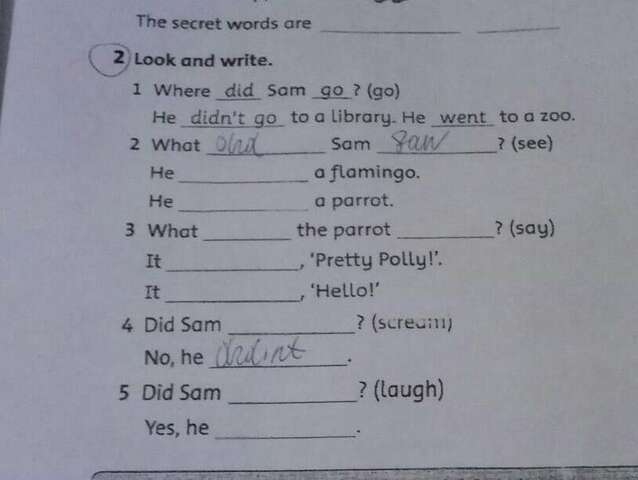 The secret words are ____________ ________
2 Look and write.
1 Where did Sam go? (go)
He didn't go to a library. He went to a zoo.
2 What did Sam saw? (see)
He ____________ a flamingo.
He ____________ a parrot.
3 What ________ the parrot _________? (say)
It ____________, 'Pretty Polly!'.
It ____________, 'Hello!'
4 Did Sam ____________? (scream)
No, he didint.
5 Did Sam ____________? (laugh)
Yes, he _____________.